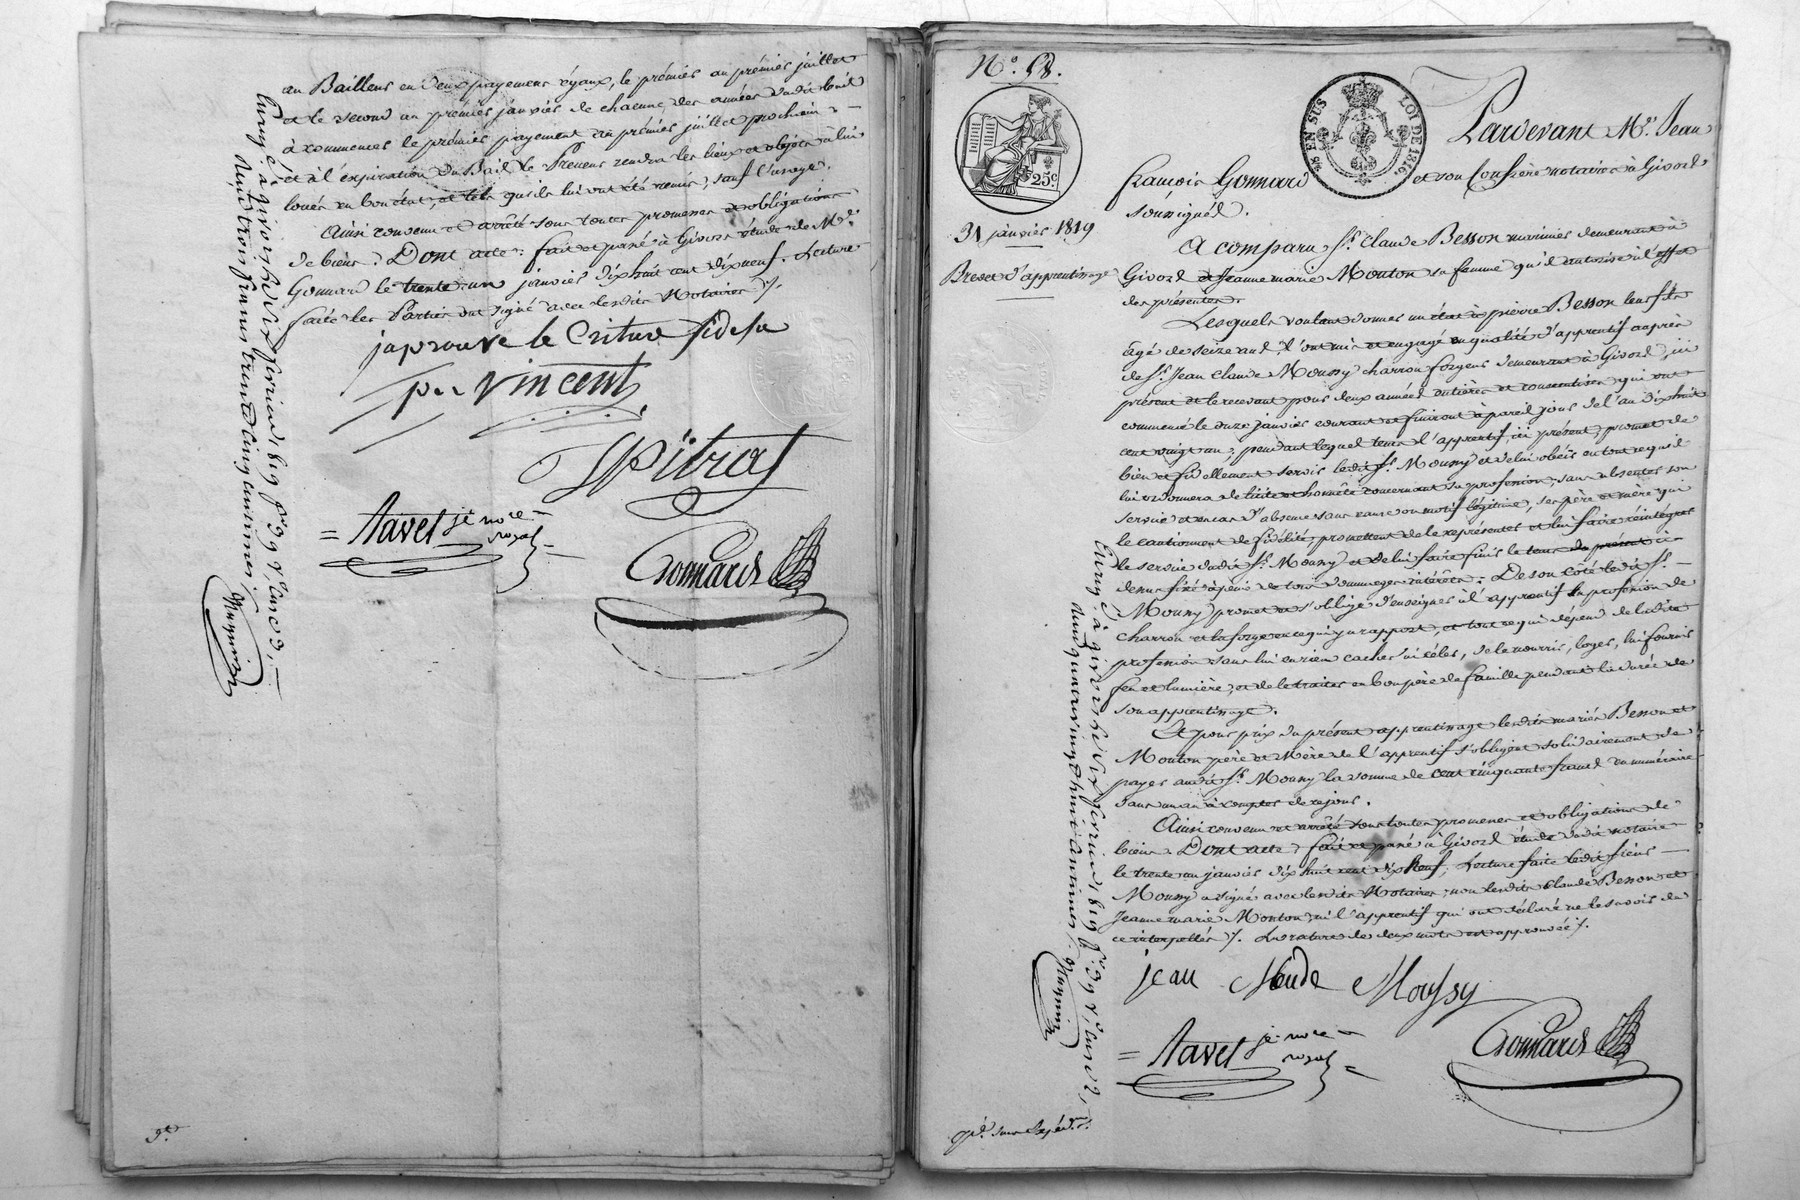 au Bailleur en deux payemens égaux, le prémier au prémier juillet
et le second au prémier janvier de chacune des années dudit bail
à commencer le prémier payement au prémier juillet prochain :
et à l'expiration du Bail le Preneur rendra les lieux et objets à lui
loués en bon état, et tels qu'ils lui ont été remis, sauf l'usage.
Ainsi convenu et arrêté sous toutes promesses et obligations
de biens. Dont acte : fait et passé à Givors étude de Me.
Gonnard le trente un janvier dix huit cent dix neuf. Lecture
faite les Parties ont signé avec lesdits Notaires ./.
japrouve le Criture si desu
per vincent
Pitrat
= Navet je nore =
royal =
Gonnard
Enreg. à givors le dix fevrier 1819 fo. 39 Vo.
deux francs trente cinq centimes
No. 58.
25c.
EN SUS
LOI DE 1816.
31 janvier 1819
Brevet d'apprentissage
Pardevant Me. Jean
françois Gonnard et son Confrère notaires à Givord
soussignés.
A comparu sr. Claude Besson marinier demeurant à
Givord et Jeanne marie Mouton sa femme qu'il autorise à l'effet
des présentes.
Lesquels voulant donner un état à pierre Besson leur fils
âgé de seize ans, l'ont mis et engagé en qualité d'apprentif auprès
de sr. Jean Claude Moussy charron forgeur demeurant à Givord, ici
présent et le recevant pour deux années entières et consécutives qui ont
commencé le onze janvier courant et finiront à pareil jour de l'an dix huit
cent vingt un ; pendant lequel tems l'apprentif, ici présent, promet de
bien et fidellement servir ledit sr. Moussy et de lui obéir en tout ce qu'il
lui ordonnera de licite et honnête concernant sa profession, sans s'absenter son
service et en cas d'absence sans cause ou motif légitime, ses père et mère qui
le cautionnent de fidélité, promettent de le représenter et lui faire réintégrer
le service dudit sr. Moussy et de lui faire finir le tems du présent ci-
dessus fixé à peine de tous dommages intérêts. De son côté ledit sr.
Moussy promet et s'oblige d'enseigner à l'apprentif la profession de
charron et la forge en ce qui y a rapport, et tout ce qui dépend de ladite
profession sans lui en rien cacher ni céler, de le nourrir, loger, lui fournir
feu et lumière, et de le traiter en bon père de famille pendant la durée de
son apprentissage.
Et pour prix du présent apprentissage lesdits mariés Besson et
Mouton père et Mère de l'apprentif s'obligent solidairement de
payer audit sr. Moussy la somme de cent cinquante francs en numéraire
dans un an à compter de ce jour.
Ainsi convenu et arrêté sous toutes promesses et obligations de
biens. Dont acte, fait et passé à Givord étude dudit notaire
le trente un janvier dix huit cent dix Neuf, Lecture faite ledit sieur
Moussy a signé avec lesdits Notaires ; non lesdits Claude Besson et
Jeanne marie Mouton, ni l'apprentif qui ont déclaré ne le savoir de
ce interpellés ./. La rature de deux mots est approuvée ./.
jean Claude Moussy
= Navet je nore =
royal =
Gonnard
Enreg. à givors le dix fevrier 1819 fo. 39 Vo.